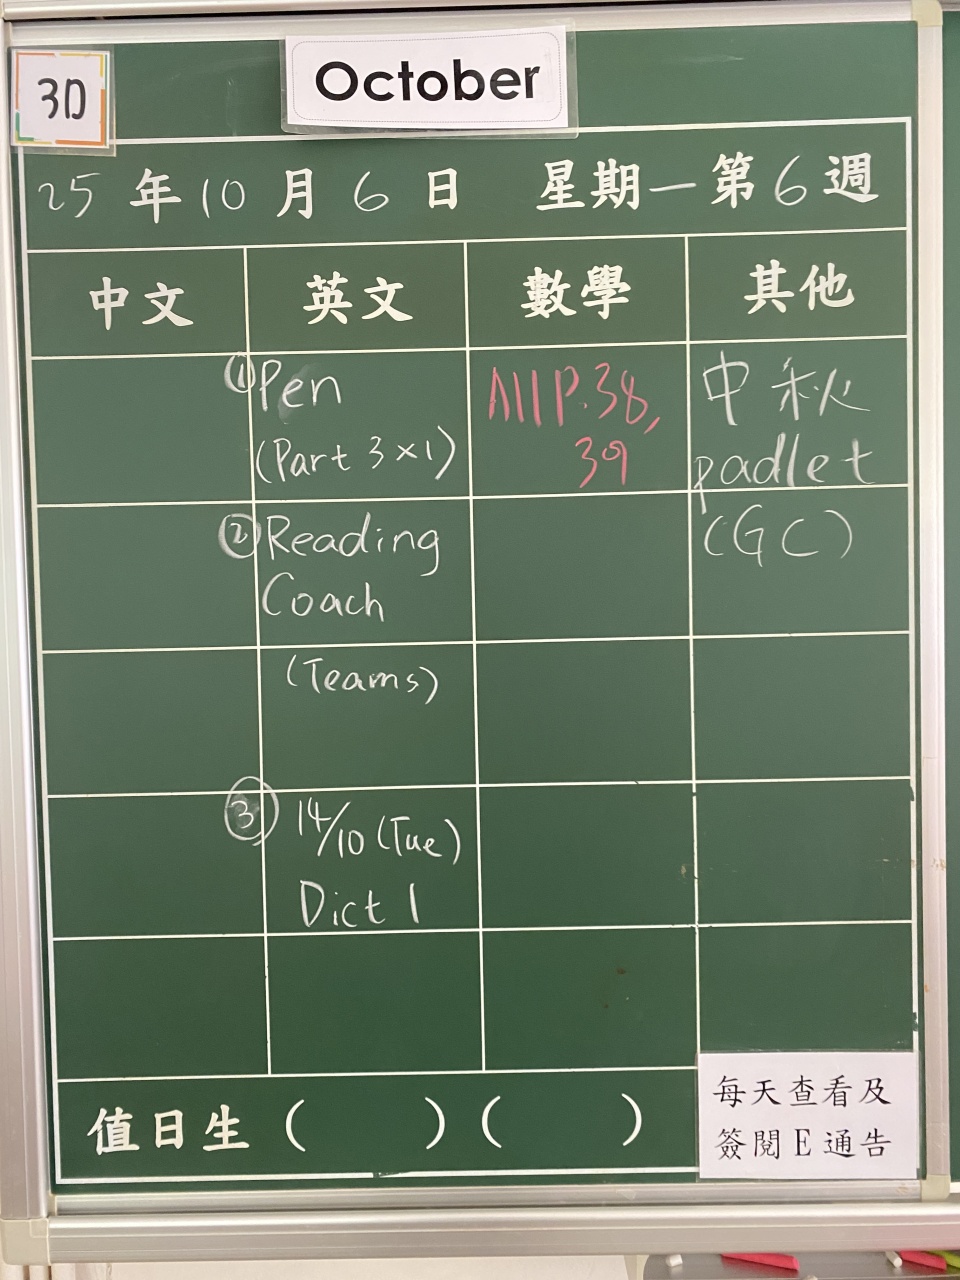 October
3D
25年10月6日 星期一第6週
中文 英文 數學 其他
①Pen
(Part 3×1)
②Reading
Coach
(Teams)
③ 14/10 (Tue)
Dict 1
P.38,
39
中秋
padlet
(GC)
值日生 ( ) ( )
每天查看及
簽閱E通告